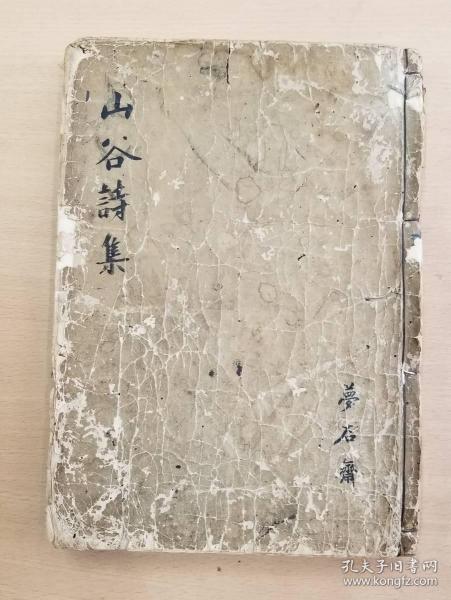 山谷詩集
夢石齋
孔夫子旧书网
www.kongfz.com